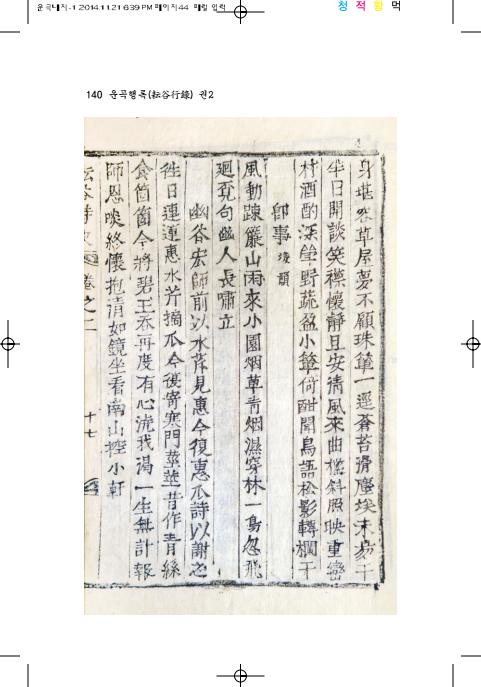 운곡내지-1 2014.11.21 6:39 PM 페이지44 매킬 입력
청 적 황 먹
140 운곡행록(耘谷行錄) 권2
身堪容草屋夢不顧珠簞一逕蒼苔滑塵埃未易干
半日開談笑襟懷靜且安淸風來曲檻斜照映重巒
村酒酌深瑩野蔬盈小簞倚酣聞鳥語松影轉欄干
卽事 後韻
風動踈簾山雨來小園烟草靑烟濕穿林一鳥忽飛
廻覓句幽人長嘯立
幽谷宏師前以水芹見惠今復惠瓜詩以謝之
徃日連連惠水芹摘瓜今復寄寒門莖莖昔作靑絲
食箇箇今將碧玉呑再度有心流我渴一生無計報
師恩啖終懷抱淸如鏡坐看南山控小軒
耘谷詩史 卷之二
十七